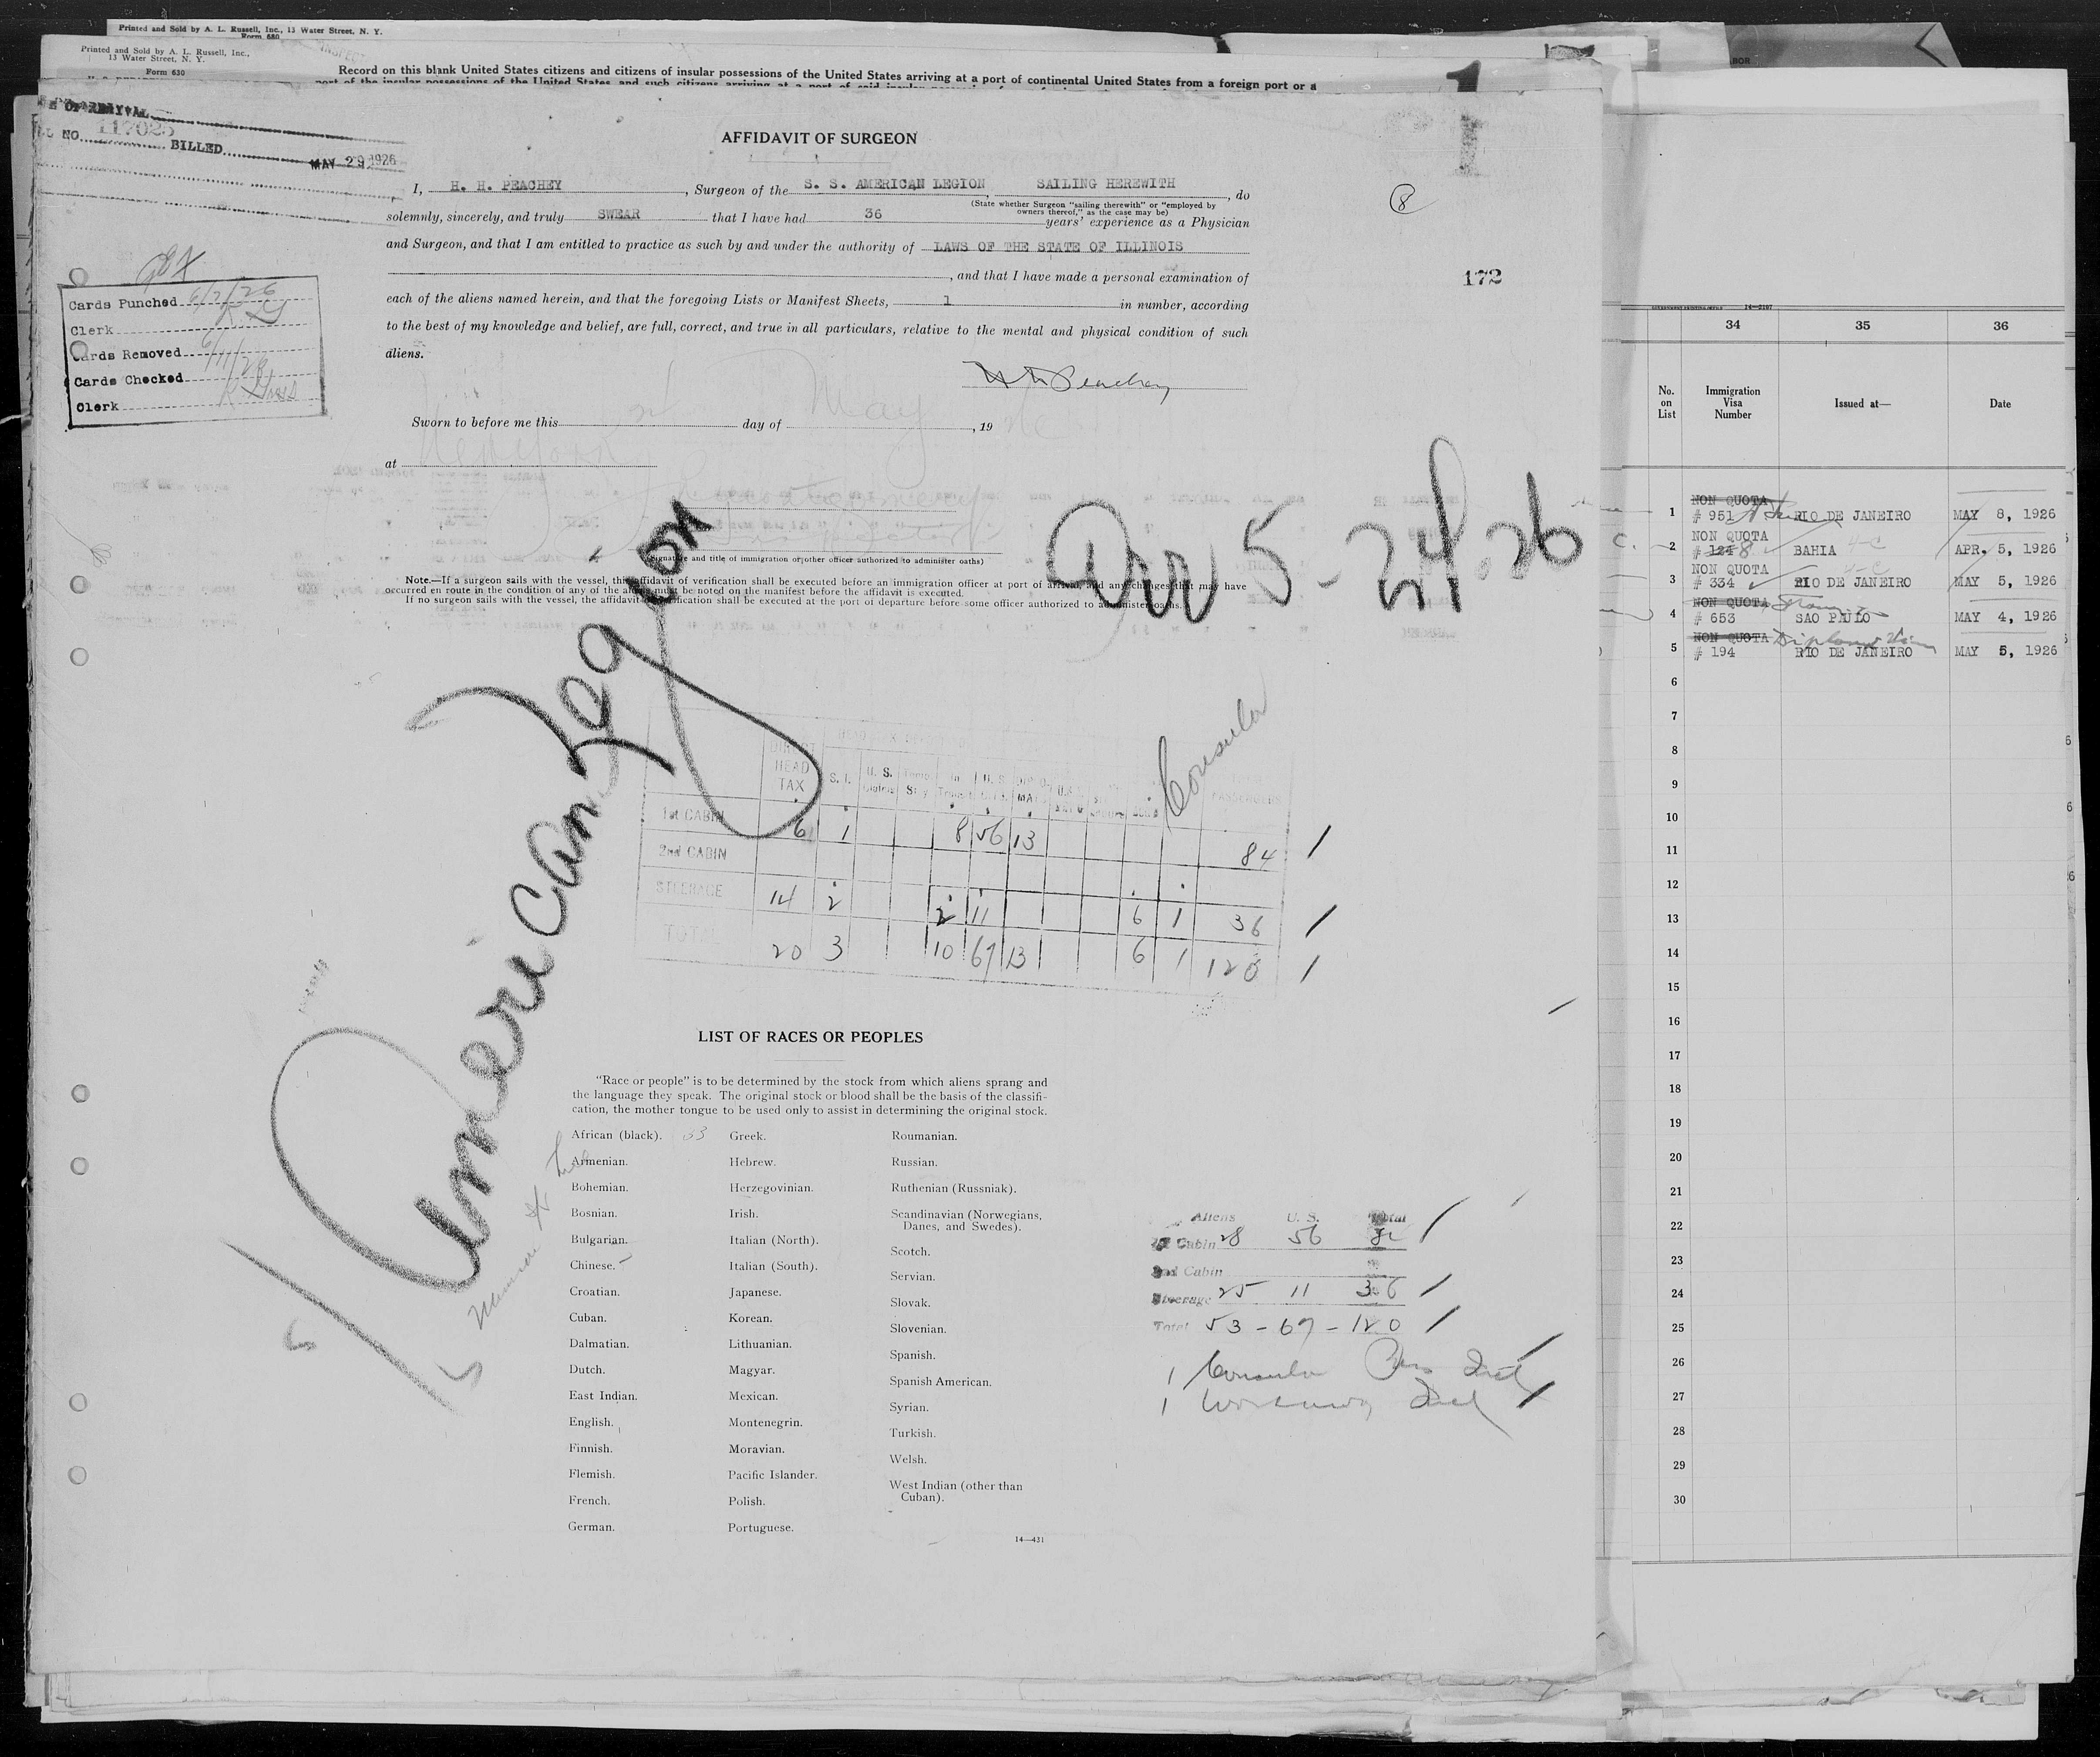 Printed and Sold by A. L. Russell, Inc., 13 Water Street, N. Y.
Form 680
Printed and Sold by A. L. Russell, Inc.,
13 Water Street, N. Y.
Form 630
Record on this blank United States citizens and citizens of insular possessions of the United States arriving at a port of continental United States from a foreign port or a
OF ARRIVAL
NO. 117025
BILLED
MAY 29 1926
1
AFFIDAVIT OF SURGEON
I, H. H. PEACHEY, Surgeon of the S. S. AMERICAN LEGION SAILING HEREWITH, do
(State whether Surgeon "sailing therewith" or "employed by
owners thereof," as the case may be)
solemnly, sincerely, and truly SWEAR that I have had 36 years' experience as a Physician
and Surgeon, and that I am entitled to practice as such by and under the authority of LAWS OF THE STATE OF ILLINOIS
, and that I have made a personal examination of
each of the aliens named herein, and that the foregoing Lists or Manifest Sheets, 1 in number, according
to the best of my knowledge and belief, are full, correct, and true in all particulars, relative to the mental and physical condition of such
aliens.
H H Peachey
Sworn to before me this day of May, 19
at New York
(Signature and title of immigration or other officer authorized to administer oaths)
Note.—If a surgeon sails with the vessel, this affidavit of verification shall be executed before an immigration officer at port of arrival, and any changes that may have
occurred en route in the condition of any of the aliens must be noted on the manifest before the affidavit is executed.
If no surgeon sails with the vessel, the affidavit of verification shall be executed at the port of departure before some officer authorized to administer oaths.
8
172
Cards Punched 6/2/26
Clerk
Cards Removed 6/11/26
Cards Checked
Clerk
American Legion
Arr 5-24-26
Consular
DIRECT HEAD TAX
S. I.
U. S.
1st CABIN 6 1 8 56 13 84
2nd CABIN
STEERAGE 14 2 2 11 6 1 36
TOTAL 20 3 10 67 13 6 1 120
LIST OF RACES OR PEOPLES
"Race or people" is to be determined by the stock from which aliens sprang and
the language they speak. The original stock or blood shall be the basis of the classifi-
cation, the mother tongue to be used only to assist in determining the original stock.
African (black). 53
Armenian.
Bohemian.
Bosnian.
Bulgarian.
Chinese.
Croatian.
Cuban.
Dalmatian.
Dutch.
East Indian.
English.
Finnish.
Flemish.
French.
German.
Greek.
Hebrew.
Herzegovinian.
Irish.
Italian (North).
Italian (South).
Japanese.
Korean.
Lithuanian.
Magyar.
Mexican.
Montenegrin.
Moravian.
Pacific Islander.
Polish.
Portuguese.
Roumanian.
Russian.
Ruthenian (Russniak).
Scandinavian (Norwegians,
Danes, and Swedes).
Scotch.
Servian.
Slovak.
Slovenian.
Spanish.
Spanish American.
Syrian.
Turkish.
Welsh.
West Indian (other than
Cuban).
14—431
Aliens U. S. Total
Cabin 28 56
2nd Cabin
Steerage 25 11 36
Total 53 - 67 - 120
1 Consular
1 Workaway
34 35 36
No.
on
List
Immigration
Visa
Number
Issued at—
Date
NON QUOTA
1 # 951 RIO DE JANEIRO MAY 8, 1926
NON QUOTA
2 # 124 8 BAHIA 4-C APR. 5, 1926
NON QUOTA 4-C
3 # 334 RIO DE JANEIRO MAY 5, 1926
NON QUOTA
4 # 653 SAO PAULO MAY 4, 1926
NON QUOTA
5 # 194 RIO DE JANEIRO MAY 5, 1926
6
7
8
9
10
11
12
13
14
15
16
17
18
19
20
21
22
23
24
25
26
27
28
29
30